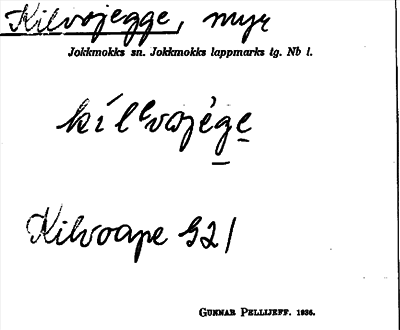 Kilvojegge, myr
Jokkmokks sn. Jokkmokks lappmarks tg. Nb l.
kílevojége
Kilvoape 921
GUNNAR PELLIJEFF. 1936.